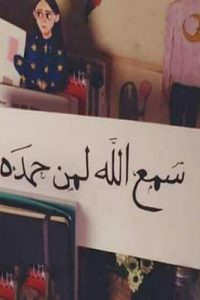 سَمع اللَّه لمن حمدَه